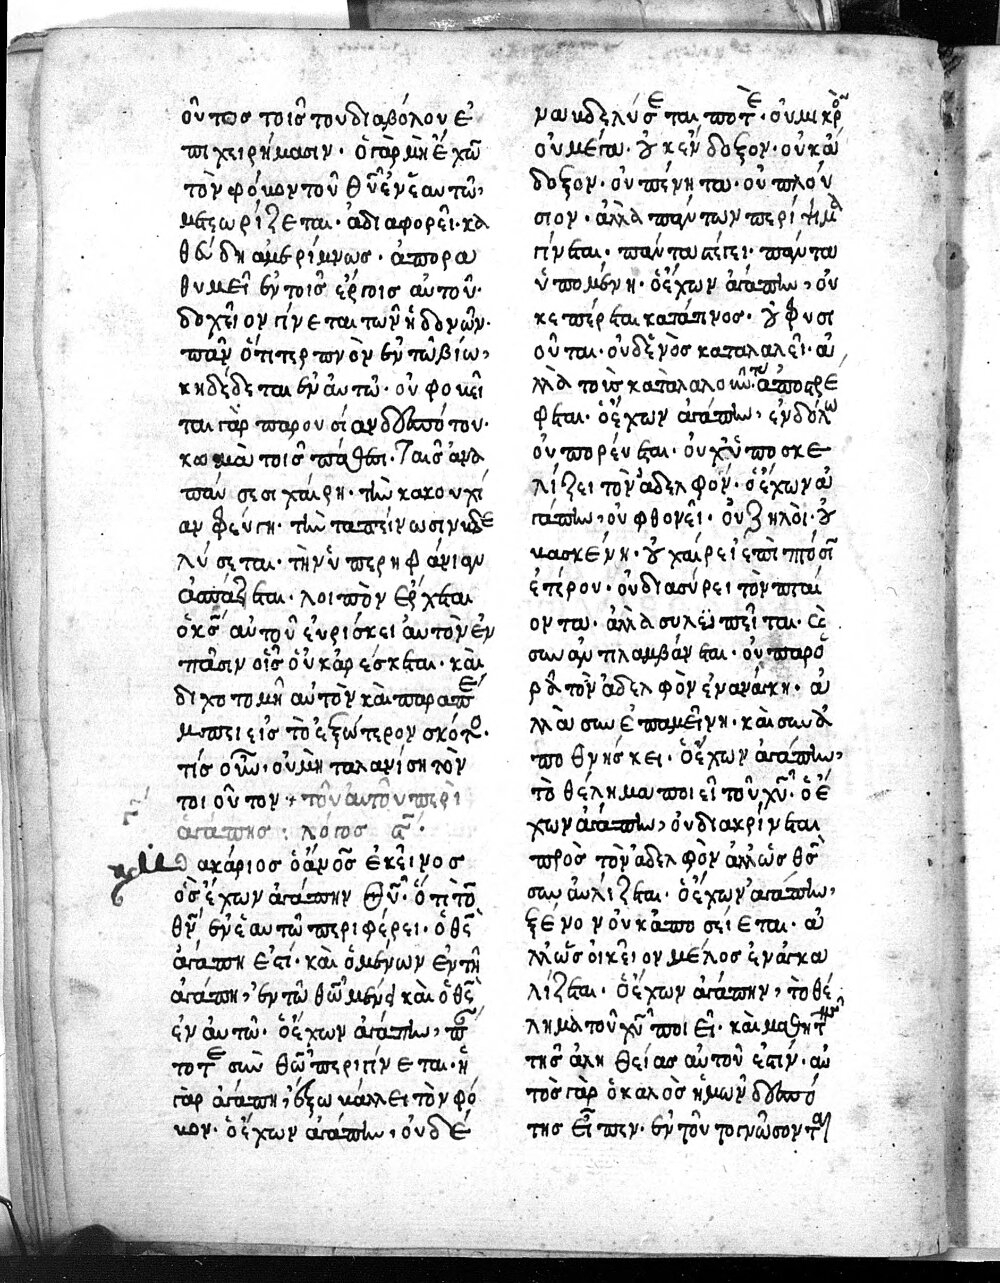 οὕτως τοῖς τοῦ διαβόλου ἐ
πιχειρήμασιν· ὁ γὰρ μὴ ἔχων
τὸν φόβον τοῦ θῦ ἐν ἑαυτῶ,
μετεωρίζεται· ἀδιαφορεῖ· κα
θεύδη ἀμερίμνως· ἀπορα
θυμεῖ ἐν τοῖς ἔργοις αὐτοῦ·
δοχεῖον γίνεται τῶν ἡδονῶν·
πᾶν ὅτι τερπνὸν ἐν τῶ βίω,
κηδέδεται ἐν αὐτῶ· οὐ φοβεῖ
ται γὰρ παρουσίαν δεσπότου·
τοῖς πάθεσι· Ταῖς ἀνα
παύσεσι χαίρη· τὴν κακουχί
αν φεύγη· τὴν ταπείνωσιν βδε
λύσεται· τὴν ὑπερηφάνιαν
ἀσπάζεται· λοιπὸν ἔρχεται
ὁ κς αὐτοῦ εὑρίσκει αὐτὸν ἐν
πᾶσιν οἷς οὐκ ἀρέσκεται· καὶ
διχοτομῆ αὐτὸν καὶ παραπέ
μπει εἰς τὸ ἐξώτερον σκότος·
τίς οὖν, οὐ μὴ ταλανίση τὸν
τοιοῦτον + τοῦ αὐτοῦ περὶ
ἀγάπης : λόγος
ακάριος ὁ ἄνος ἐκεῖνος
ὁ ἔχων ἀγάπην θῦ· ὅτι τὸν
θν ἐν ἑαυτῶ περιφέρει· ὁ θς
ἀγάπη ἐστί· καὶ ὁ μένων ἐν τῆ
ἀγάπη, ἐν τῶ θῶ μένει καὶ ὁ θς
ἐν αὐτῶ· ὁ ἔχων ἀγάπην, πάν
τοτε σὺν θῶ περιγίνεται· ἡ
γὰρ ἀγάπη, ἔξω βάλλει τὸν φό
βον· ὁ ἔχων ἀγάπην, οὐδέ
να βδελύσεται ποτέ· οὐ μικρὸν
οὐ μέγα· οὐκ ἔνδοξον· οὐκ ἄ
δοξον· οὐ πένητα· οὐ πλού
σιον· ἀλλὰ πάντων περίψημα
γίνεται· πάντα στέγει· πάντα
ὑπομένη· ὁ ἔχων ἀγάπην, οὐ
κεπέρεται κατά τινος· οὐ φυσι
οῦται· οὐδενὸς καταλαλεῖ· ἀ
λλὰ τοὺς καταλαλοῦντας ἀποστρέ
φεται· ὁ ἔχων ἀγάπην, ἐν δόλω
οὐ πορεύεται· οὐχ ὑποσκε
λίζει τὸν ἀδελφόν· ὁ ἔχων ἀ
γάπην, οὐ φθονεῖ· οὐ ζηλοῖ· οὐ
βασκένη· οὐ χαίρει ἐπὶ πτώσει
ἑτέρου· οὐ διασύρει τὸν πταί
οντα· ἀλλὰ συλλυπεῖται·
συναντιλαμβάνεται· οὐ παρο
ρᾶ τὸν ἀδελφὸν ἐν ἀνάγκη· ἀ
λλὰ συνεπαμείνη· καὶ συνα
ποθνήσκει· ὁ ἔχων ἀγάπην,
τὸ θέλημα ποιεῖ τοῦ χυ· ὁ ἔ
χων ἀγάπην, οὐ διακρίνεται
πρὸς τὸν ἀδελφὸν ἄλλως
συναυλίζεται· ὁ ἔχων ἀγάπην,
ξένον οὐκ ἀποσείεται· ἀ
λλ ὡς οἰκεῖον μέλος ἐναγκα
λίζεται· ὁ ἔχων ἀγάπην, τὸ θέ
λημα τοῦ χυ ποιεῖ· καὶ μαθητὴς
τῆς ἀληθείας αὐτοῦ ἐστίν· αὐ
τὸς γὰρ ὁ καλὸς ἡμῶν δεσπό
της εἶπεν· ἐν τούτο γνώσονται